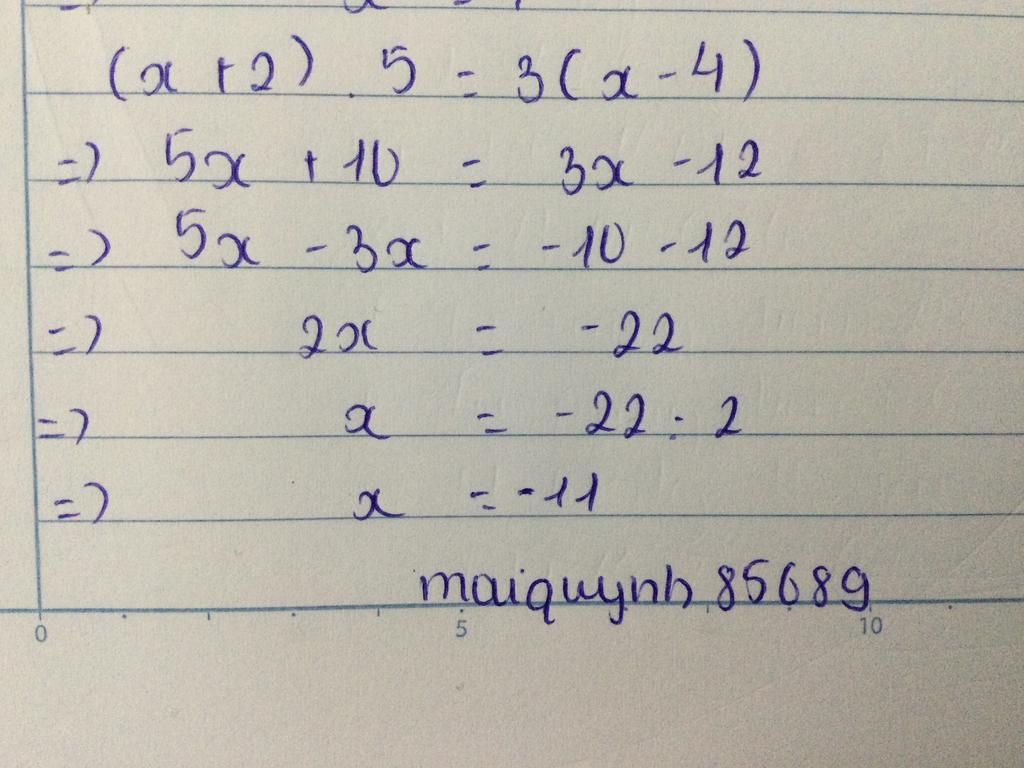 (x + 2) . 5 = 3(x - 4)
=> 5x + 10 = 3x - 12
=> 5x - 3x = -10 - 12
=> 2x = -22
=> x = -22 : 2
=> x = -11
maiquynh 85689
0 5 10